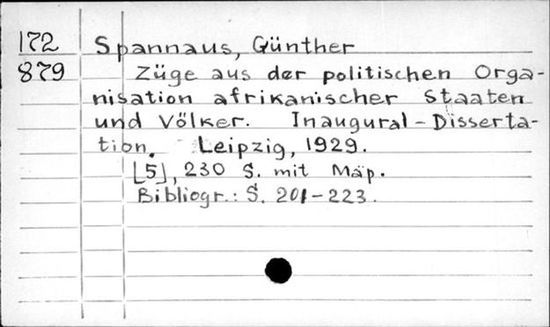 172 Spannaus, Günther
879 Züge aus der politischen Orga-
nisation afrikanischer Staaten
und Völker. Inaugural-Disserta-
tion. Leipzig, 1929.
[5], 230 S. mit Map.
Bibliogr.: S. 201-223.